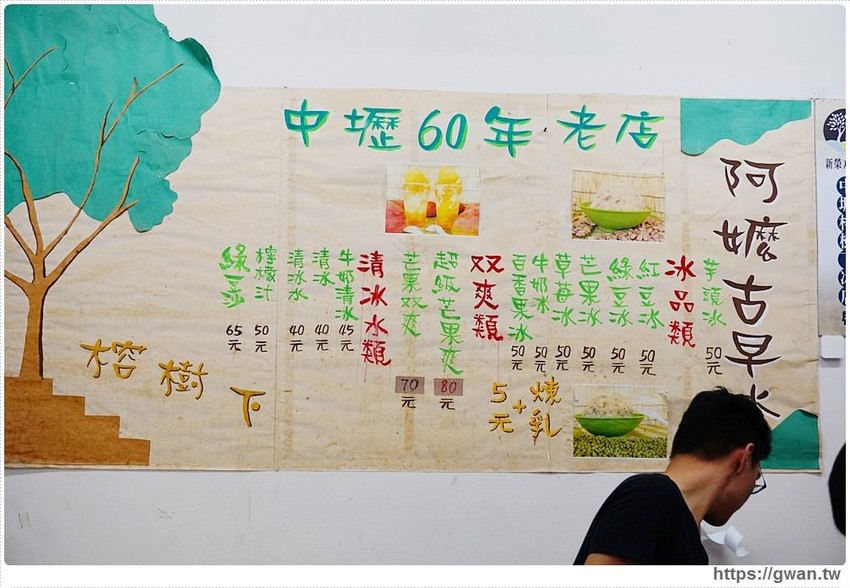 中壢60年老店
阿嬤古早冰
芋頭冰 50元
冰品類
紅豆冰 50元
綠豆冰 50元
芒果冰 50元
草莓冰 50元
牛奶冰 50元
百香果冰 50元
双爽類
超級芒果爽 80元
芒果双爽 70元
清冰水類
牛奶清冰 45元
清冰 40元
清冰水 40元
檸檬汁 50元
綠豆沙 65元
煉乳+5元
榕樹下
新榮
https://gwan.tw